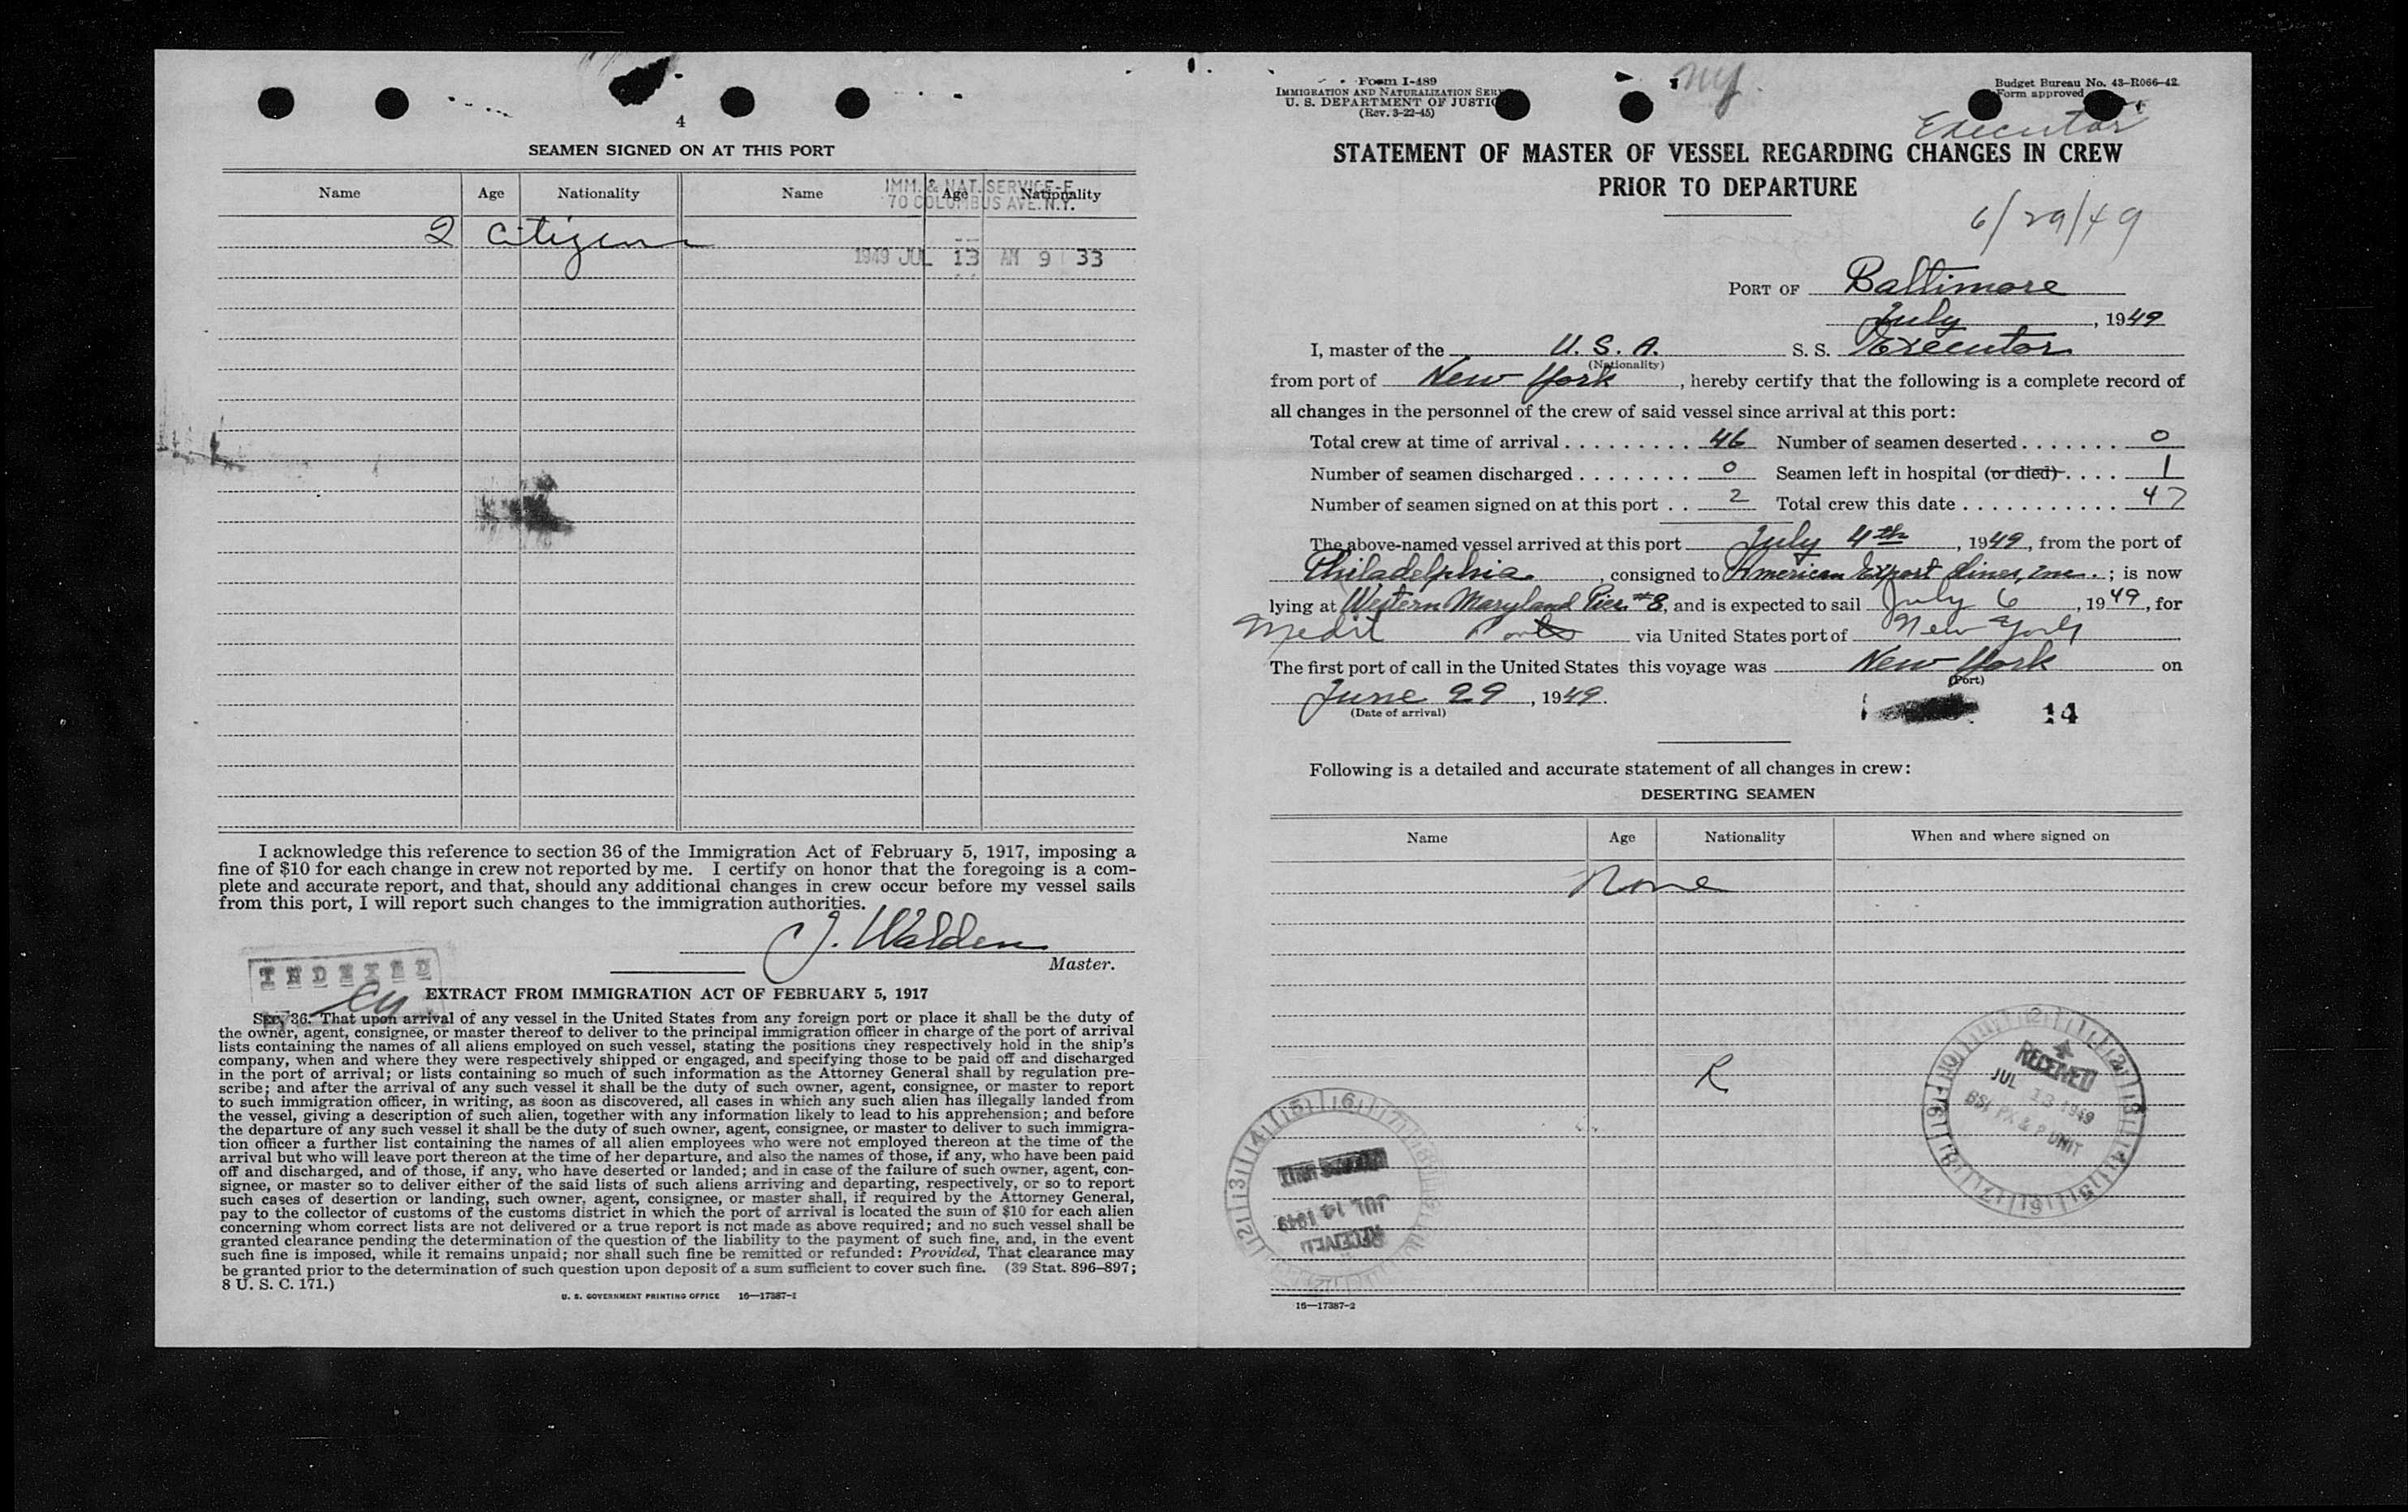 4
SEAMEN SIGNED ON AT THIS PORT
Name Age Nationality Name Age Nationality
IMM. & NAT. SERVICE-E
70 COLUMBUS AVE. N.Y.
2 Citizens
1949 JUL 13 AM 9 33
I acknowledge this reference to section 36 of the Immigration Act of February 5, 1917, imposing a
fine of $10 for each change in crew not reported by me. I certify on honor that the foregoing is a com-
plete and accurate report, and that, should any additional changes in crew occur before my vessel sails
from this port, I will report such changes to the immigration authorities.
J. Walden
Master.
INDEXED
EXTRACT FROM IMMIGRATION ACT OF FEBRUARY 5, 1917
SEC. 36. That upon arrival of any vessel in the United States from any foreign port or place it shall be the duty of
the owner, agent, consignee, or master thereof to deliver to the principal immigration officer in charge of the port of arrival
lists containing the names of all aliens employed on such vessel, stating the positions they respectively hold in the ship's
company, when and where they were respectively shipped or engaged, and specifying those to be paid off and discharged
in the port of arrival; or lists containing so much of such information as the Attorney General shall by regulation pre-
scribe; and after the arrival of any such vessel it shall be the duty of such owner, agent, consignee, or master to report
to such immigration officer, in writing, as soon as discovered, all cases in which any such alien has illegally landed from
the vessel, giving a description of such alien, together with any information likely to lead to his apprehension; and before
the departure of any such vessel it shall be the duty of such owner, agent, consignee, or master to deliver to such immigra-
tion officer a further list containing the names of all alien employees who were not employed thereon at the time of the
arrival but who will leave port thereon at the time of her departure, and also the names of those, if any, who have been paid
off and discharged, and of those, if any, who have deserted or landed; and in case of the failure of such owner, agent, con-
signee, or master so to deliver either of the said lists of such aliens arriving and departing, respectively, or so to report
such cases of desertion or landing, such owner, agent, consignee, or master shall, if required by the Attorney General,
pay to the collector of customs of the customs district in which the port of arrival is located the sum of $10 for each alien
concerning whom correct lists are not delivered or a true report is not made as above required; and no such vessel shall be
granted clearance pending the determination of the question of the liability to the payment of such fine, and, in the event
such fine is imposed, while it remains unpaid; nor shall such fine be remitted or refunded: Provided, That clearance may
be granted prior to the determination of such question upon deposit of a sum sufficient to cover such fine. (39 Stat. 896–897;
8 U. S. C. 171.)
U. S. GOVERNMENT PRINTING OFFICE 16—17387-1
Form I-489
IMMIGRATION AND NATURALIZATION
U. S. DEPARTMENT OF
(Rev. 3-22-45)
NY
Budget Bureau No. 43–R066–42
Form approved
Executor
STATEMENT OF MASTER OF VESSEL REGARDING CHANGES IN CREW
PRIOR TO DEPARTURE
6/29/49
PORT OF Baltimore
July, 1949
I, master of the U. S. A. S. S. Executor
(Nationality)
from port of New York, hereby certify that the following is a complete record of
all changes in the personnel of the crew of said vessel since arrival at this port:
Total crew at time of arrival 46 Number of seamen deserted 0
Number of seamen discharged 0 Seamen left in hospital (or died) 1
Number of seamen signed on at this port 2 Total crew this date 47
The above-named vessel arrived at this port July 4th, 1949, from the port of
Philadelphia, consigned to American Export Lines, Inc.; is now
lying at Western Maryland Pier #8, and is expected to sail July 6, 1949, for
Medit Ports via United States port of New York
The first port of call in the United States this voyage was New York on
(Port)
June 29, 1949.
(Date of arrival)
14
Following is a detailed and accurate statement of all changes in crew:
DESERTING SEAMEN
Name Age Nationality When and where signed on
None
R
RECEIVED
JUL 13 1949
UNIT
RECEIVED
JUL 14 1949
16—17387-2